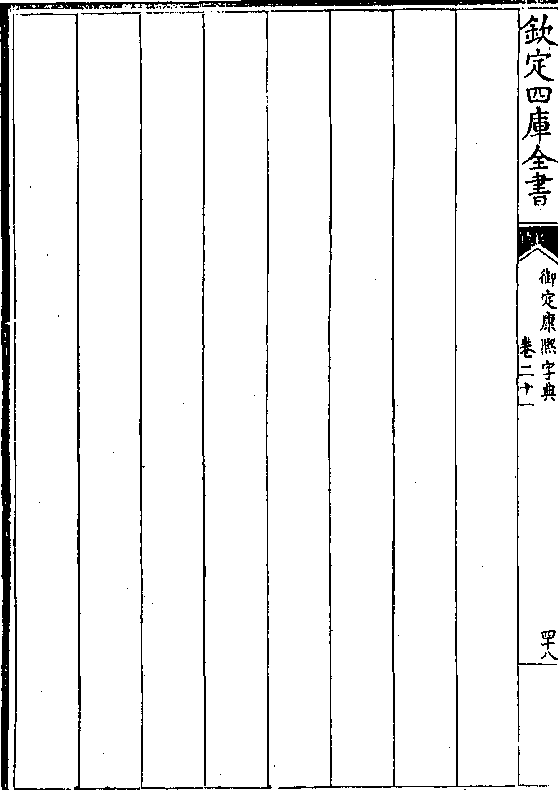 欽定四庫全書
御定康熙字典
卷二十一
四十八